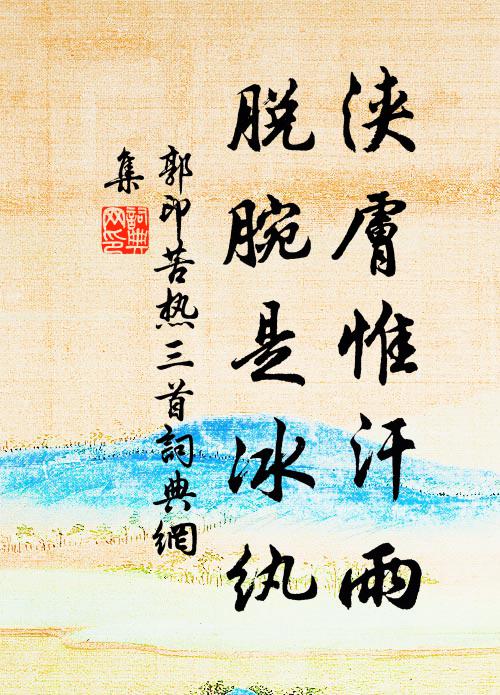 浹膚惟汗雨
脱腕是冰纨
郭印苦热三首詞典網
集
詞典
网印